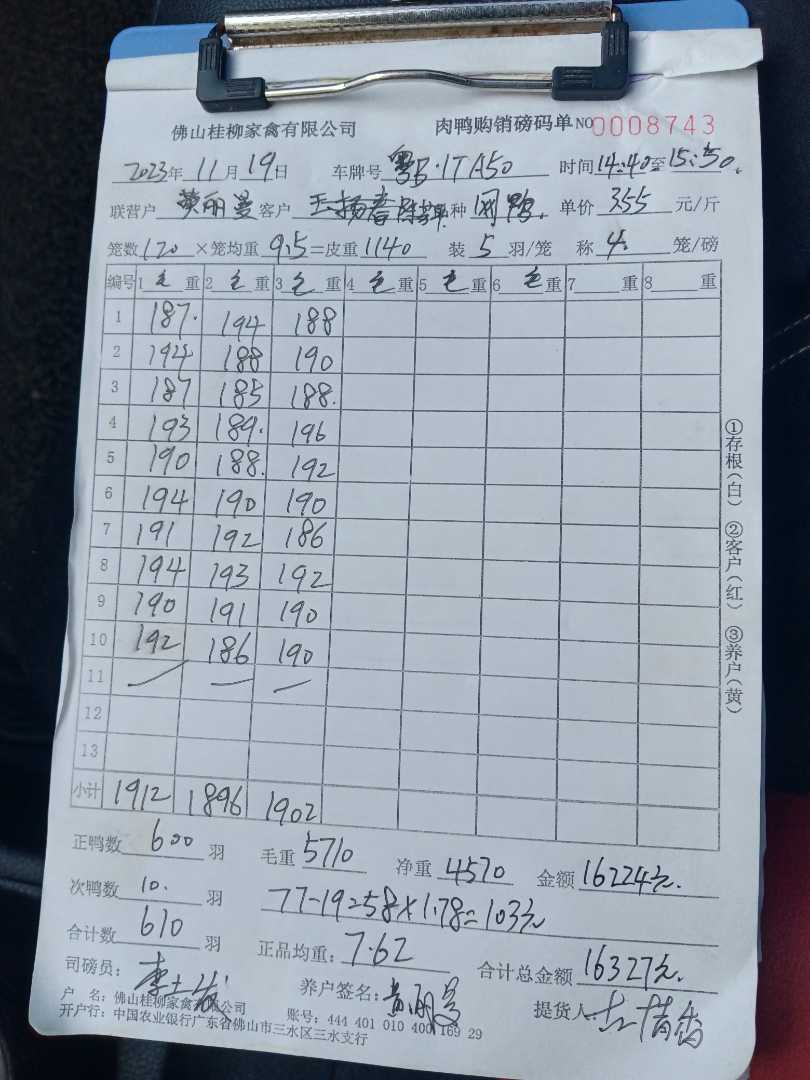 佛山桂柳家禽有限公司 肉鸭购销磅码单 NO 0008743
2023年 11月 19日 车牌号 粤B·1TA50 时间 14:40至15:50.
联营户 黄丽曼 客户 王扬春 种 单价 355 元/斤
笼数 120 ×笼均重 9.5 =皮重 1140 装 5 羽/笼 称 4. 笼/磅
编号 1 毛 重 2 毛 重 3 毛 重 4 毛 重 5 毛 重 6 毛 重 7 重 8 重
1 187. 194 188
2 194 188 190
3 187 185 188.
4 193 189. 196
5 190 188. 192
6 194 190 190
7 191 192 186
8 194 193 192
9 190 191 190
10 192 186 190
11
12
13
小计 1912 1896 1902
正鸭数 600 羽 毛重 5710 净重 4570 金额 16224元.
次鸭数 10. 羽 77-19=58×1.78=103元
合计数 610 羽 正品均重: 7.62 合计总金额 16327元.
司磅员: 养户签名: 黄丽曼 提货人
户 名: 佛山桂柳家禽有限公司 账号: 444 401 010 400 169 29
开户行: 中国农业银行广东省佛山市三水区三水支行
①存根(白) ②客户(红) ③养户(黄)